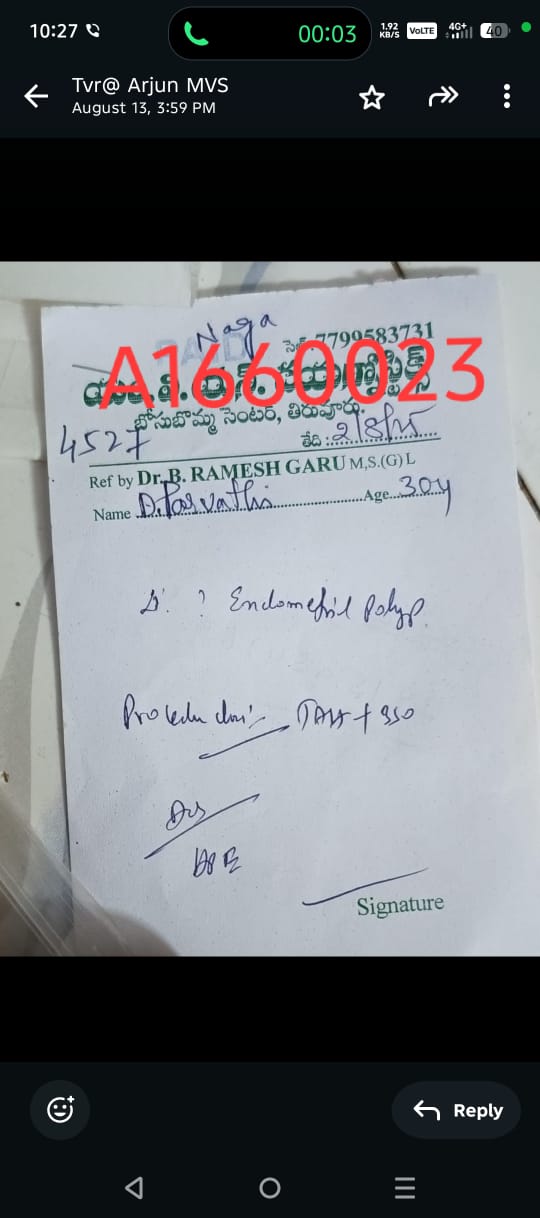 10:27
00:03
1.92 KB/S
VoLTE
4G+
40
Tvr@ Arjun MVS
August 13, 3:59 PM
Naga
సెల్ 7799583731
A1660023
బోసుబొమ్మ సెంటర్, తిరువూరు.
4527
తేది : 2/8/25
Ref by Dr. B. RAMESH GARU M,S.(G) L
Name D.Parvathi Age 30y
? Endometril Polyp.
TAH + BSO
HPE
Signature
Reply